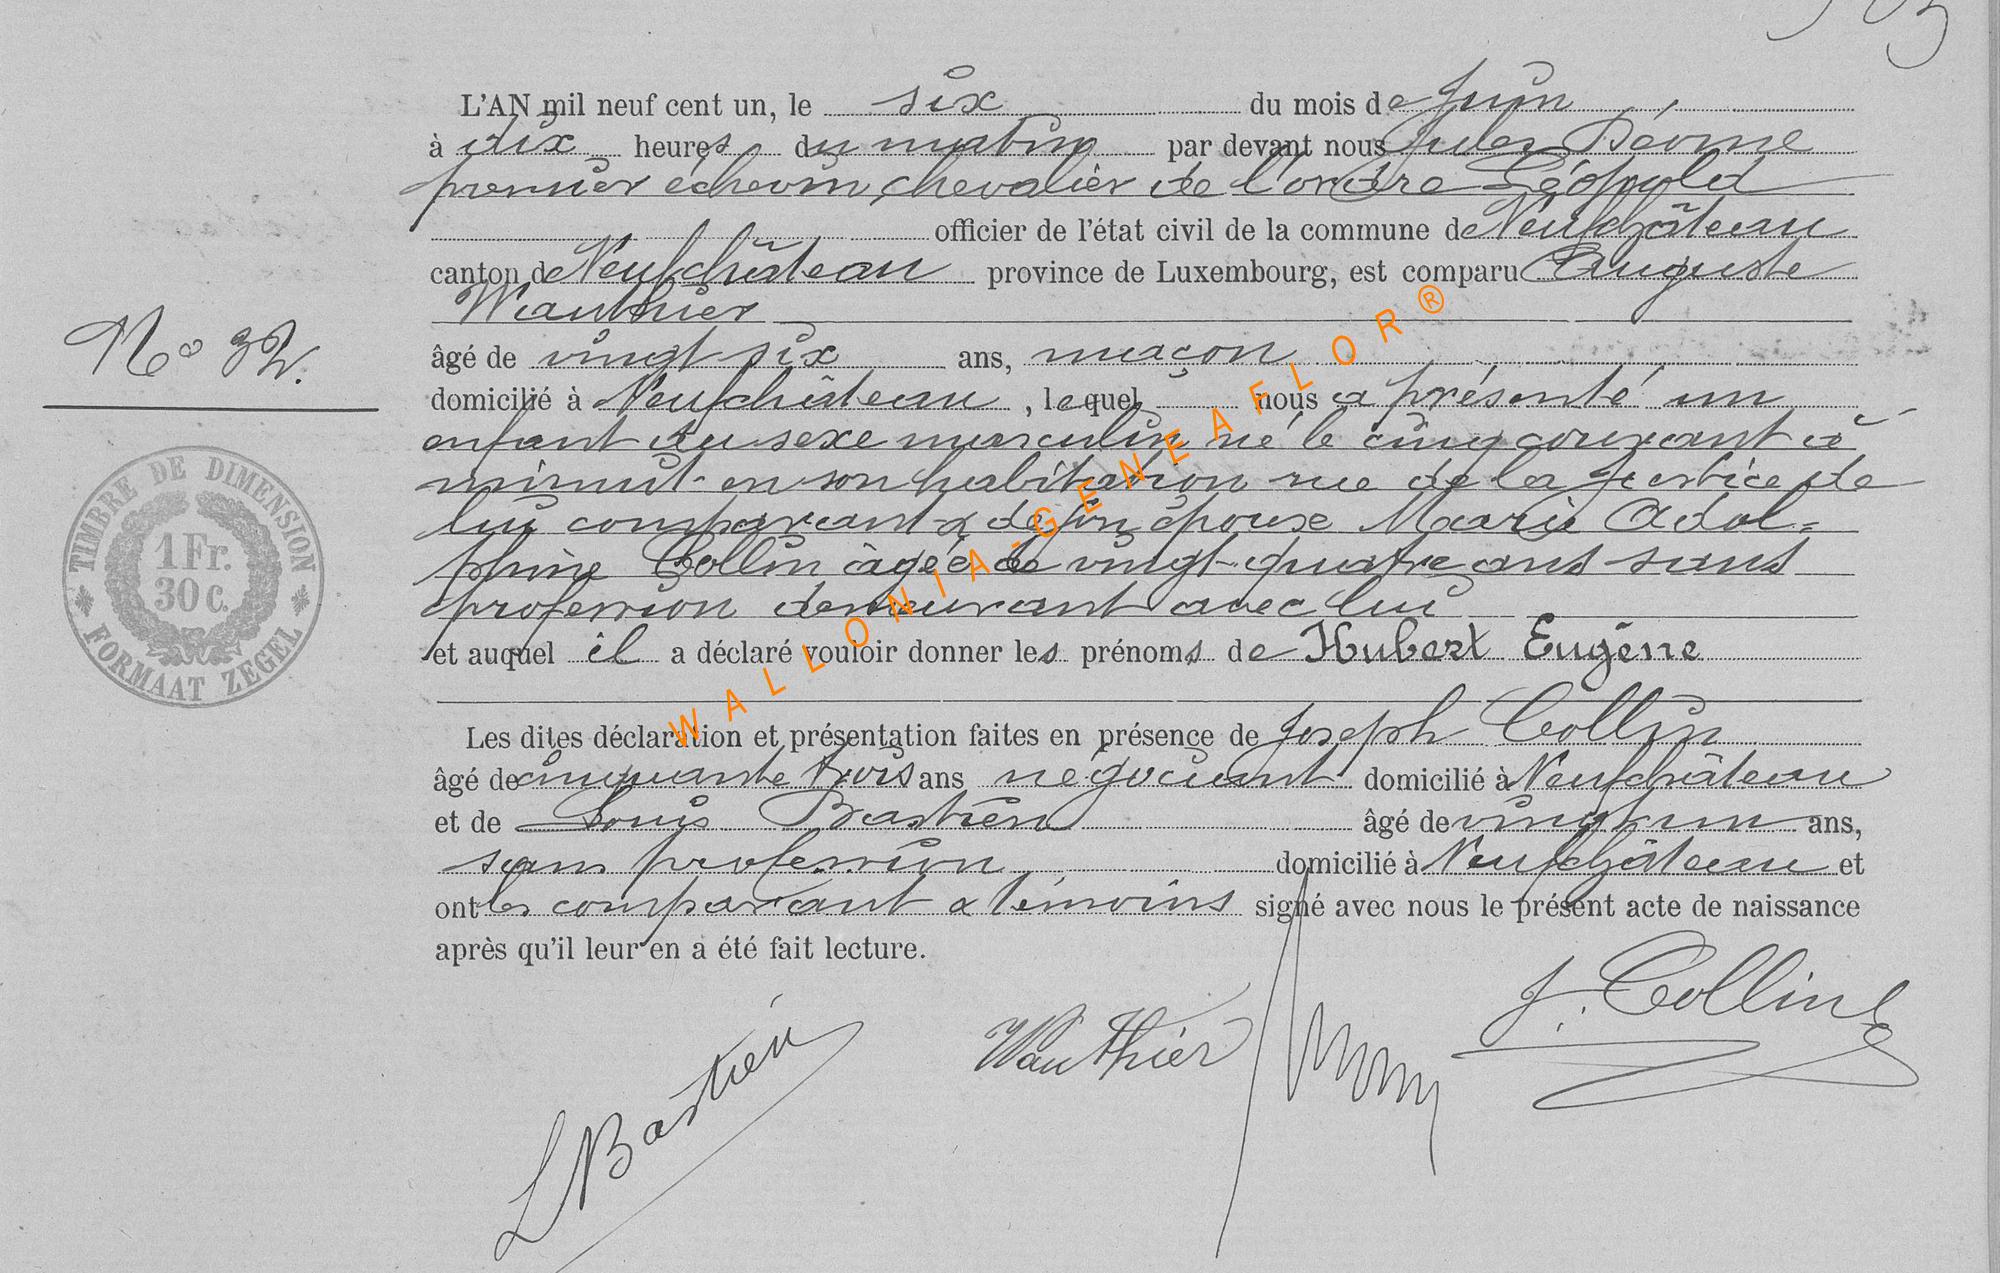 L'AN mil neuf cent un, le six du mois de Juin
à dix heures du matin par devant nous Jules
premier échevin, chevalier de l'ordre Léopold
officier de l'état civil de la commune de Neufchâteau
canton de Neufchâteau province de Luxembourg, est comparu Auguste
Wauthier
âgé de vingt six ans, maçon
domicilié à Neufchâteau, lequel nous a présenté un
enfant du sexe masculin né le cinq courant à
minuit en son habitation rue de la Justice de
lui comparant & de son épouse Marie Adol=
phine Collin âgée de vingt-quatre ans sans
profession demeurant avec lui
et auquel il a déclaré vouloir donner les prénoms de Hubert Eugène
Les dites déclaration et présentation faites en présence de Joseph Collin
âgé de cinquante trois ans négociant domicilié à Neufchâteau
et de Louis Bastien âgé de vingt un ans,
sans profession domicilié à Neufchâteau et
ont les comparant & témoins signé avec nous le présent acte de naissance
après qu'il leur en a été fait lecture.
L Bastien
Wauthier
J. Collin
No 32.
TIMBRE DE DIMENSION
1 Fr.
30 c.
FORMAAT ZEGEL
WALLONIA-GENEAFLOR®